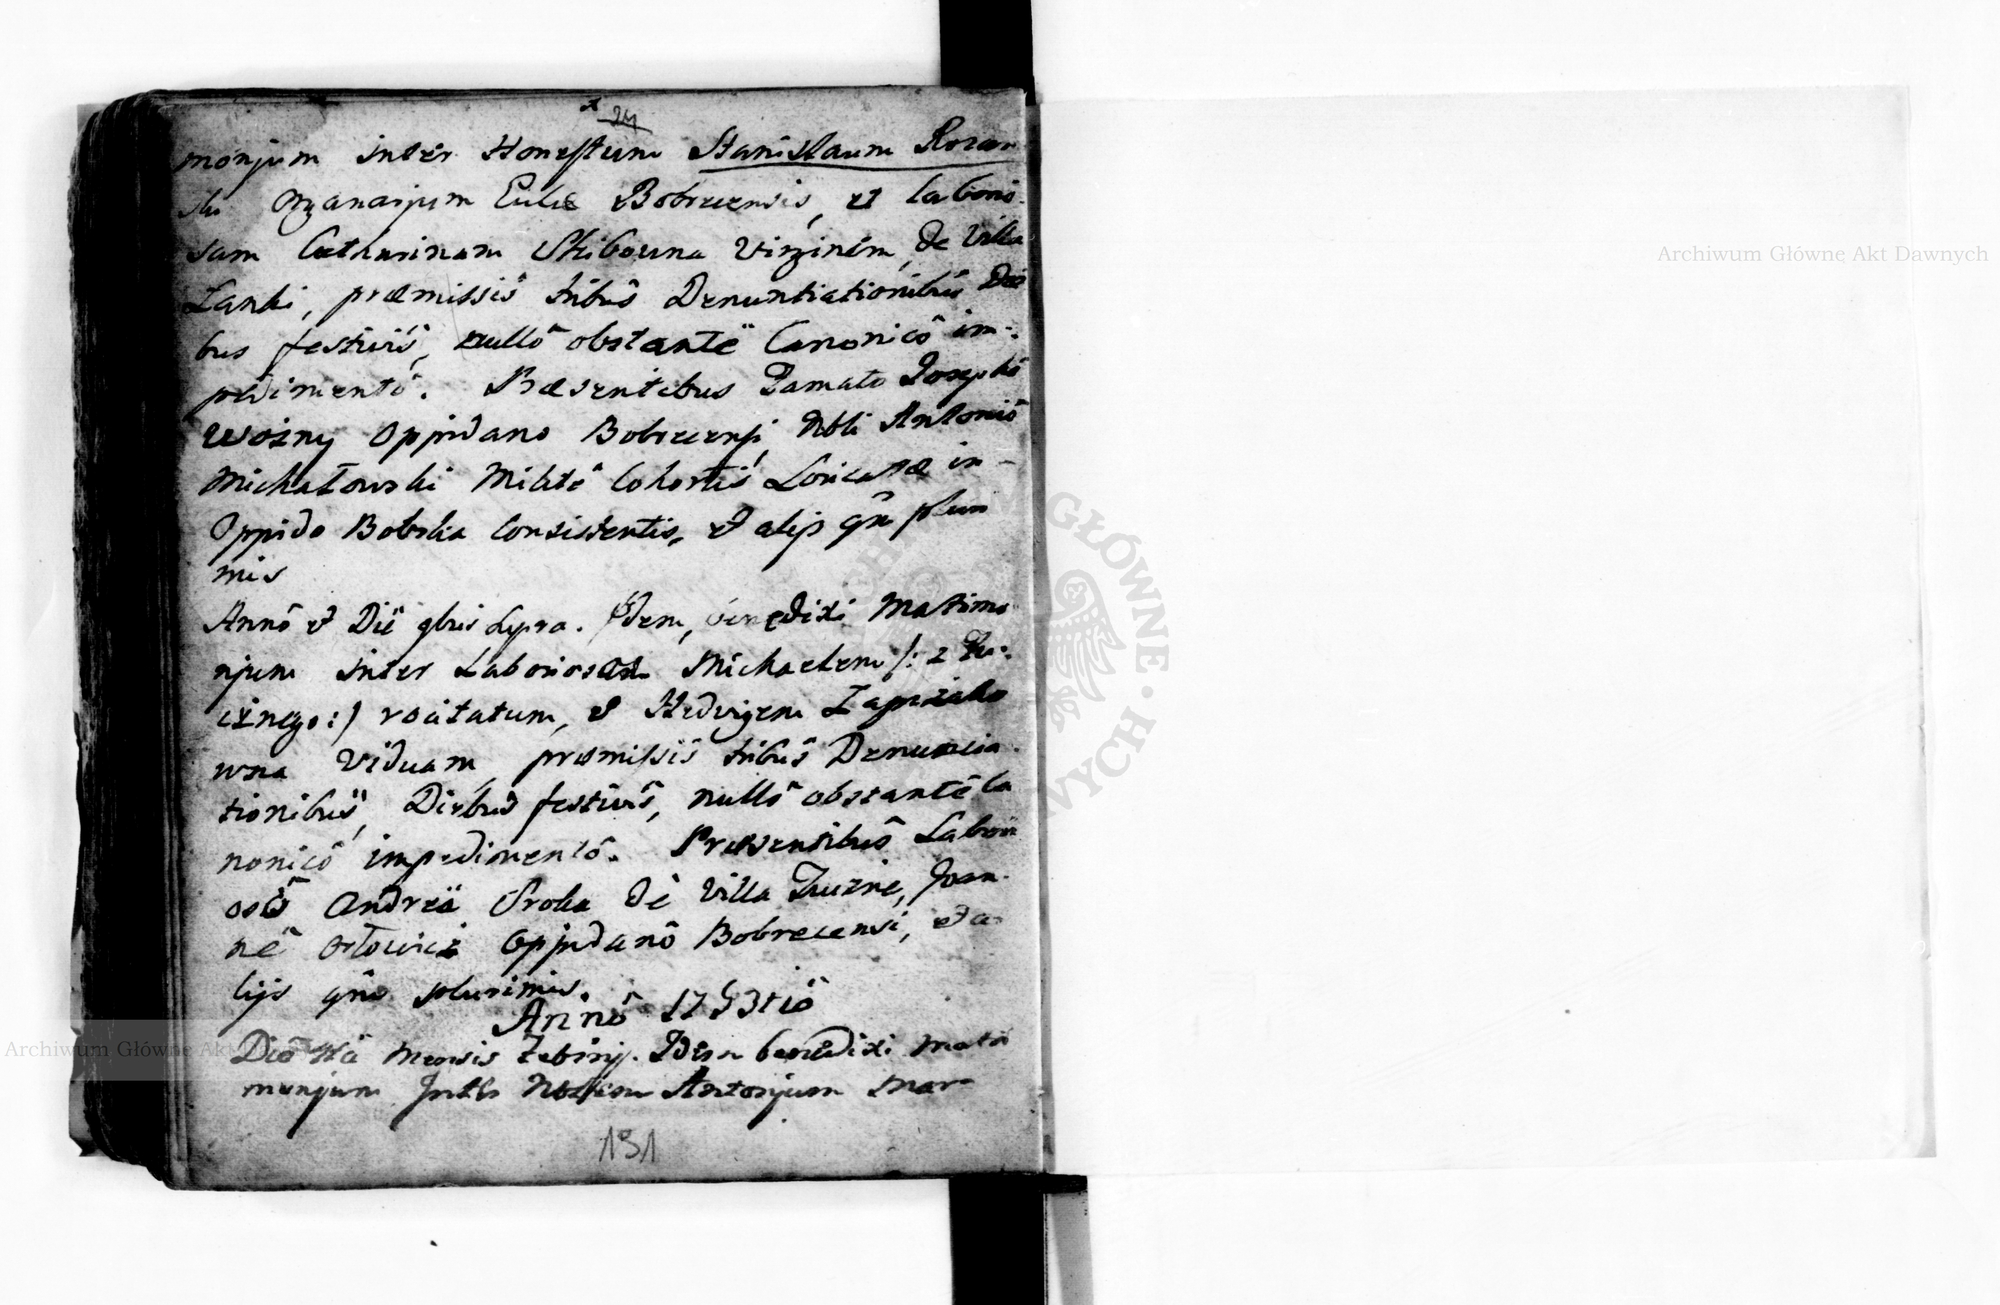 24
monjum inter Honestum Stanislaum
Organarjum Bobrecensis, et laborio-
sam Catharinam Skibowna Virginem, de Villa
Lanki, præmissis tribûs Denuntiationibûs Die
bus festivis, nullô obstantë Canonicô im-
pedimentô. Præsentibus Famato Josephô
Wozny Oppidano Bobrecensi, Nbli Antoniô
Michałowski Militê Cohortis Loricatæ in-
Oppido Bobrka Consistentis, et alijs qm pluri
mis
Annô et Diê qbus supra. Idem, benedixi Matrimo
njum inter Laboriosum Michaelem /: z
:/ vocitatum, et Hedvigem
wna Viduam, præmissis tribûs Denuncia
tionibûs, Diebus festivis, nullô obstantê Ca
nonicô impedimentô. Præsentibûs Labori
osô Andreä Sroka dê Villa, Joan-
nê Orłowicz Oppidanô Bobrecensi, et a
lijs qm plurimis.
Annô 1753tiô
mensis Febrij. Idem benedixi matri
monjum Inter Antonjum Mar-
131
Archiwum Główne Akt Dawnych
Archiwum Główne Akt Dawnych